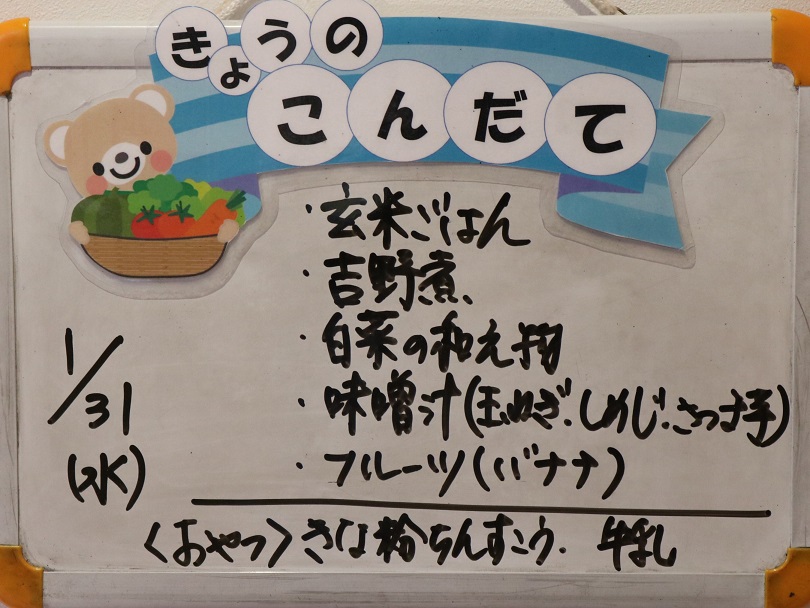 きょうの
こんだて
・玄米ごはん
・吉野煮
・白菜の和え物
・味噌汁(玉ねぎ、しめじ、さつま芋)
・フルーツ(バナナ)
1/31
(水)
〈おやつ〉きな粉ちんすこう、牛乳